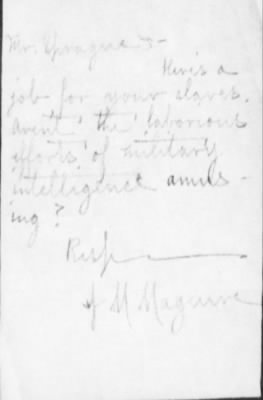 Mr. Sprague :-
Here's a
job for your slaves.
Aren't the 'laborious
efforts' of military
intelligence amus-
ing?
Resp
J M Maguire